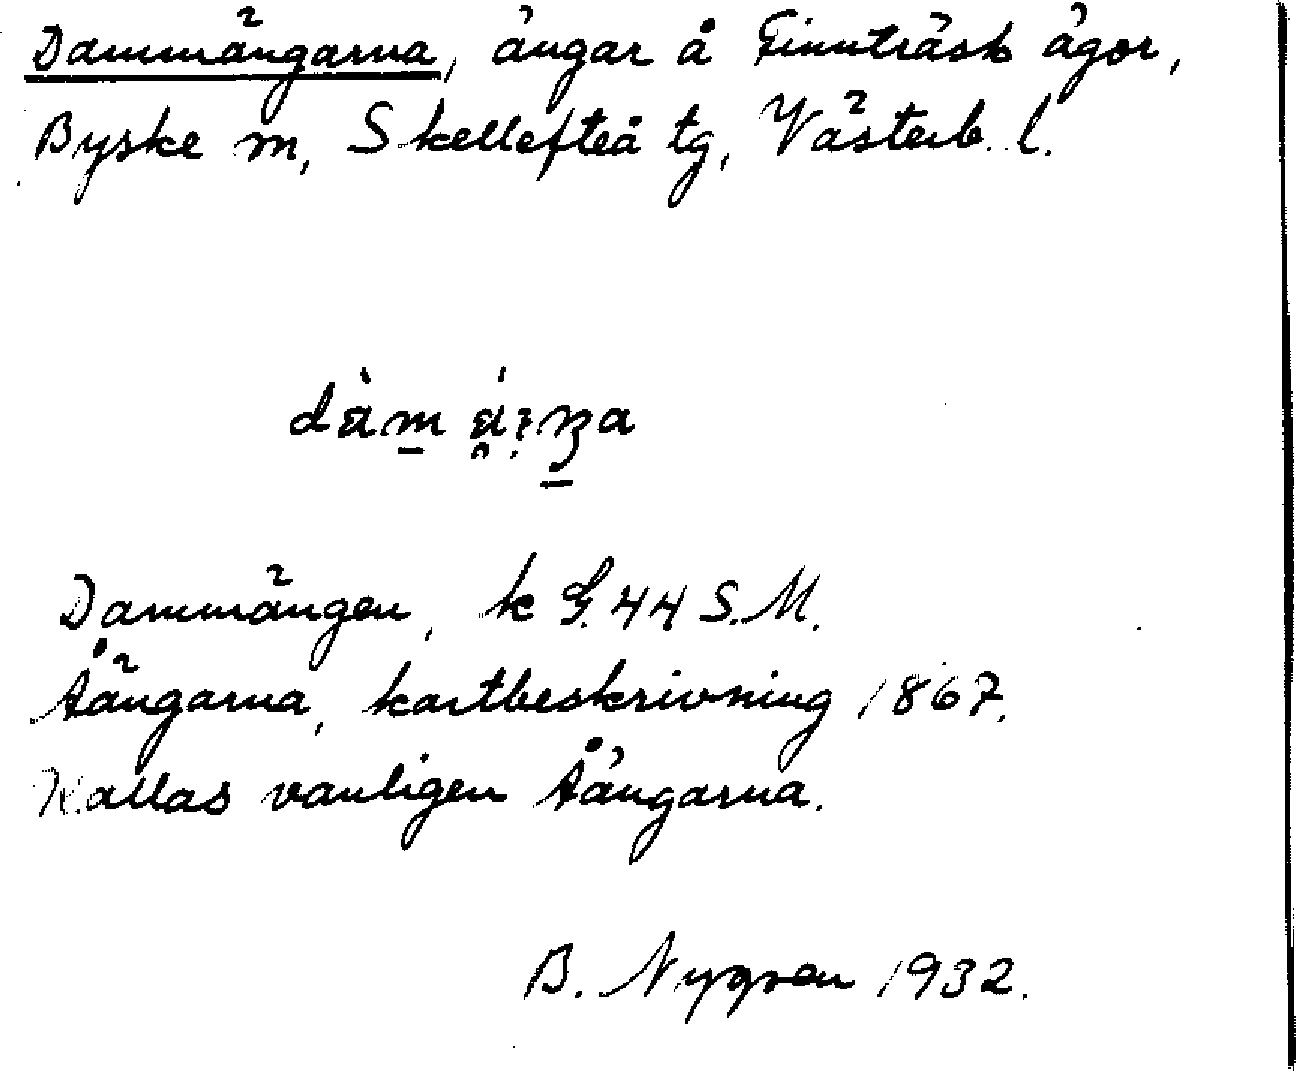 Dammängarna, ängar å Finnträsk ägor,
Byske sn, Skellefteå tg, Västerb. l.
Dammängen, k G. 44 S.M.
Åängarna, kartbeskrivning 1867.
Kallas vanligen Åängarna.
B. Nygren 1932.